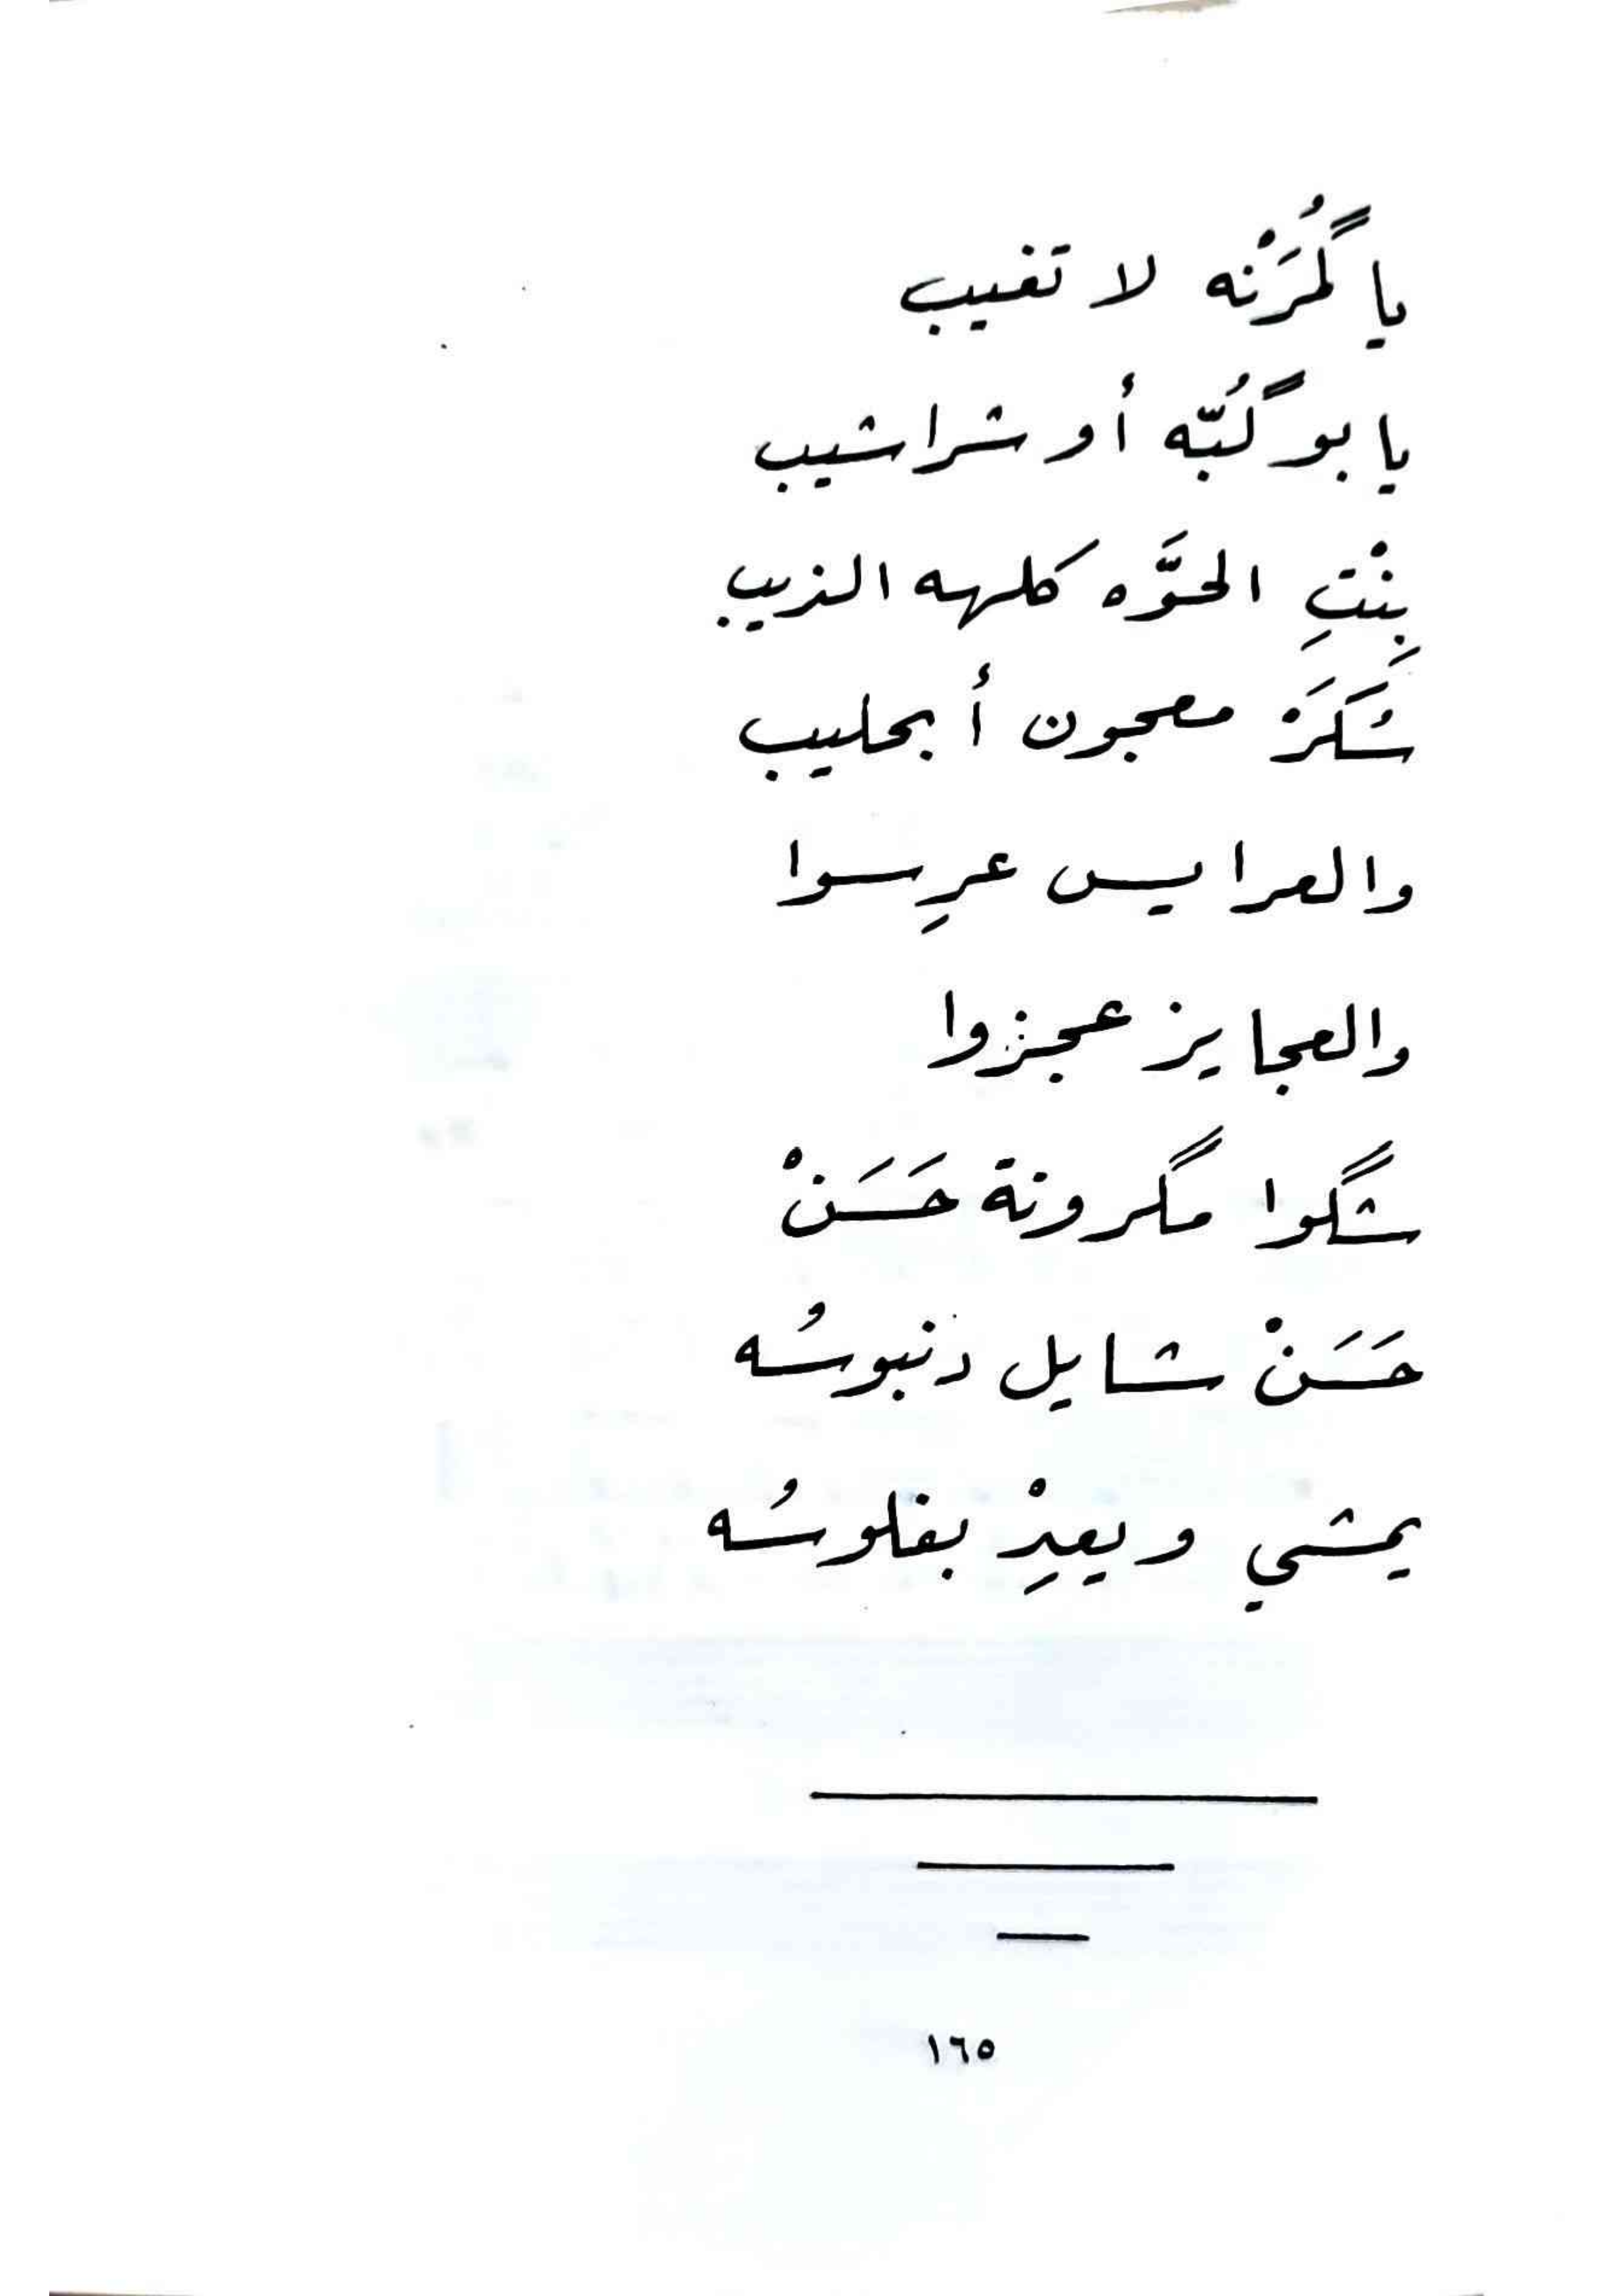 يا گُمَرْنه لا تغيب
يا بو گُبّه أو شراشيب
بِنْتِ الحوَّه كلهه الذيب
شَكَرَ معجون أبحليب
والعرايس عرِسوا
والعجايز عجزوا
شگوا مگرونة حَسَنْ
حَسَنْ شايل دنبوسُه
يمشي ويعدِْ بفلوسُه
١٦٥